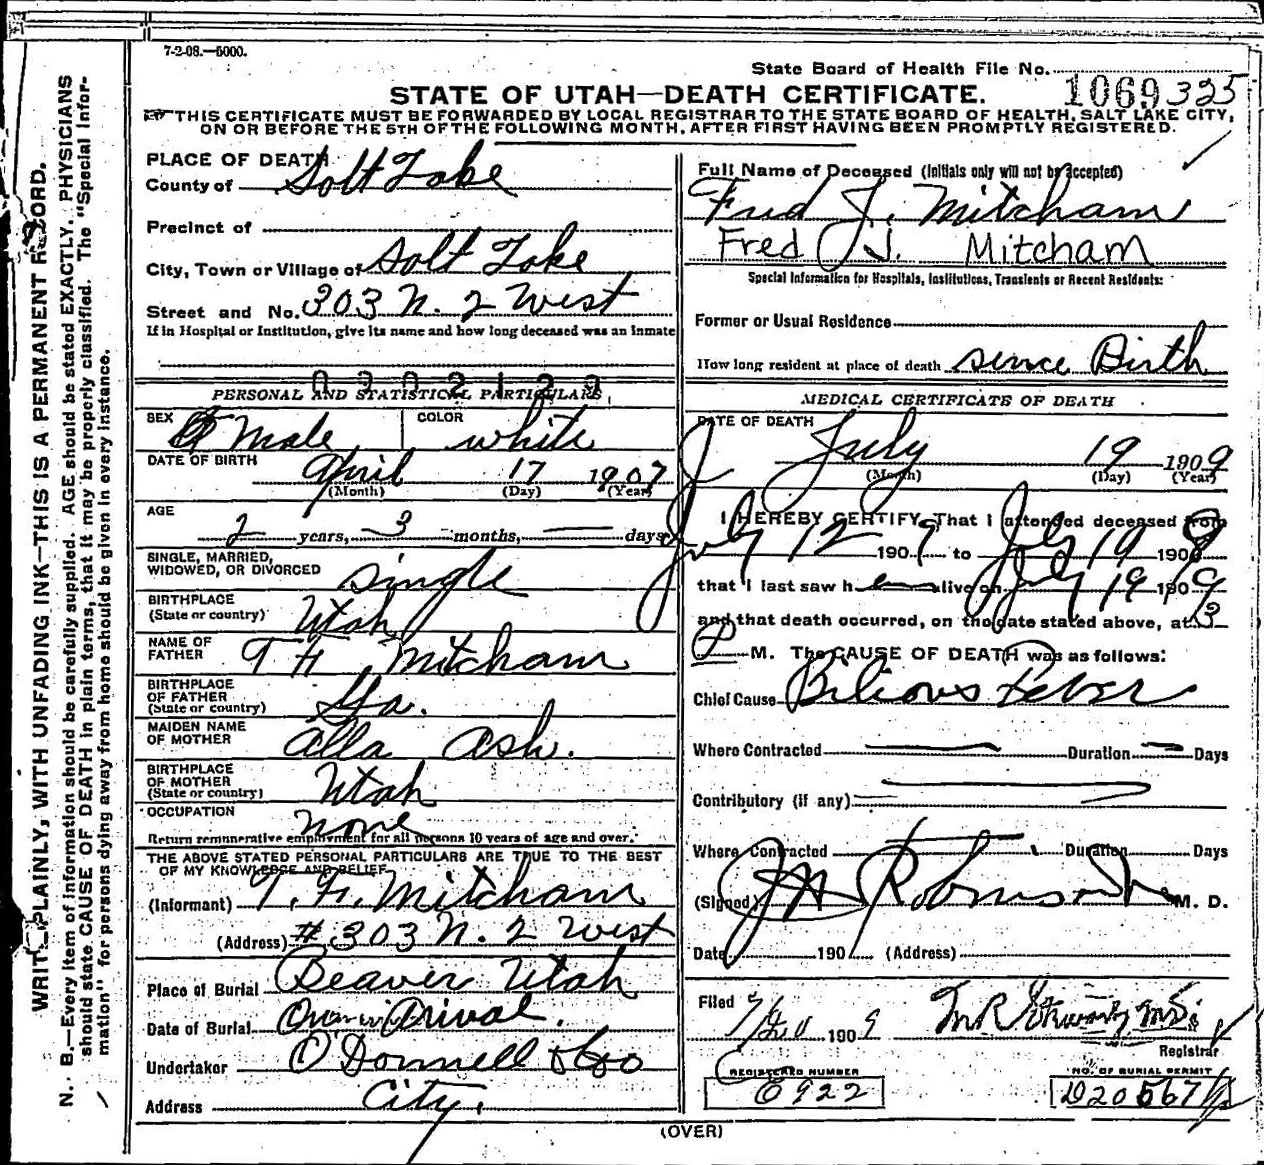 7-2-08.—5000.
State Board of Health File No.
1069325
STATE OF UTAH—DEATH CERTIFICATE.
THIS CERTIFICATE MUST BE FORWARDED BY LOCAL REGISTRAR TO THE STATE BOARD OF HEALTH, SALT LAKE CITY,
ON OR BEFORE THE 5TH OF THE FOLLOWING MONTH, AFTER FIRST HAVING BEEN PROMPTLY REGISTERED.
WRITE PLAINLY, WITH UNFADING INK—THIS IS A PERMANENT RECORD.
N. B.—Every item of information should be carefully supplied. AGE should be stated EXACTLY. PHYSICIANS
should state CAUSE OF DEATH in plain terms, that it may be properly classified. The "Special Infor-
mation" for persons dying away from home should be given in every instance.
PLACE OF DEATH
County of Salt Lake
Precinct of
City, Town or Village of Salt Lake
Street and No. 303 N. 2 West
If in Hospital or Institution, give its name and how long deceased was an inmate
0902129
PERSONAL AND STATISTICAL PARTICULARS
SEX Male COLOR white
DATE OF BIRTH April 17 1907
(Month) (Day) (Year)
AGE 2 years, 3 months, — days
SINGLE, MARRIED,
WIDOWED, OR DIVORCED single
BIRTHPLACE
(State or country) Utah
NAME OF
FATHER T. H. Mitcham
BIRTHPLACE
OF FATHER
(State or country) Ga.
MAIDEN NAME
OF MOTHER Alla Ash.
BIRTHPLACE
OF MOTHER
(State or country) Utah
OCCUPATION none
Return remunerative employment for all persons 10 years of age and over.
THE ABOVE STATED PERSONAL PARTICULARS ARE TRUE TO THE BEST
OF MY KNOWLEDGE AND BELIEF
(Informant) T. H. Mitcham
(Address) # 303 N. 2 West
Place of Burial Beaver Utah
Date of Burial Arival.
Undertaker O'Donnell & Co
Address City.
Full Name of Deceased (Initials only will not be accepted)
Fred J. Mitcham
Fred J. Mitcham
Special Information for Hospitals, Institutions, Transients or Recent Residents:
Former or Usual Residence
How long resident at place of death since Birth
MEDICAL CERTIFICATE OF DEATH
DATE OF DEATH July 19 1909
(Month) (Day) (Year)
I HEREBY CERTIFY, That I attended deceased from
July 12 1909 to July 19 1909
that I last saw h alive on July 19 1909
and that death occurred, on the date stated above, at 3
P M. The CAUSE OF DEATH was as follows:
Chief Cause Bilious Fever
Where Contracted — Duration — Days
Contributory (if any)
Where Contracted Duration Days
(Signed) J H Robinson M. D.
Date 190 (Address)
Filed 7/20 1909
Registrar
REGISTERED NUMBER
0922
NO. OF BURIAL PERMIT
D20567
(OVER)